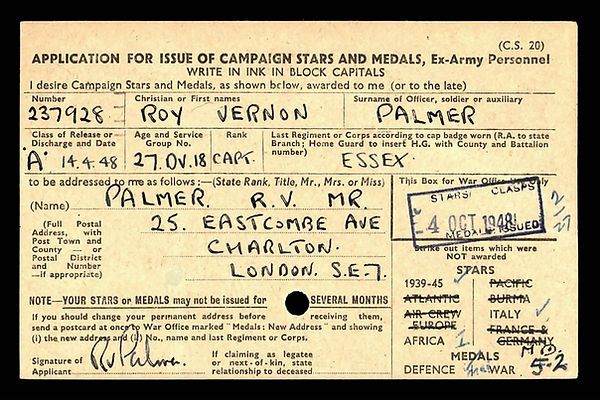 (C.S. 20)
APPLICATION FOR ISSUE OF CAMPAIGN STARS AND MEDALS, Ex-Army Personnel
WRITE IN INK IN BLOCK CAPITALS
I desire Campaign Stars and Medals, as shown below, awarded to me (or to the late)
Number Christian or First names Surname of Officer, soldier or auxiliary
237928 ROY VERNON PALMER
Class of Release or Discharge and Date Age and Service Group No. Rank Last Regiment or Corps according to cap badge worn (R.A. to state Branch; Home Guard to insert H.G. with County and Battalion number)
"A" 14.4.48 27.OV.18 CAPT. ESSEX.
to be addressed to me as follows :—(State Rank, Title, Mr., Mrs. or Miss)
(Name) PALMER. R.V. MR.
(Full Postal Address, with Post Town and County — or Postal District and Number —if appropriate)
25. EASTCOMBE AVE
CHARLTON.
LONDON. S.E.7.
This Box for War Office Use Only
STARS CLASPS
4 OCT 1948
MEDALS ISSUED
Strike out items which were NOT awarded
STARS
1939-45 PACIFIC
ATLANTIC BURMA
AIR CREW EUROPE ITALY
AFRICA 1 FRANCE & GERMANY
MEDALS
DEFENCE WAR 52
NOTE—YOUR STARS or MEDALS may not be issued for SEVERAL MONTHS
If you should change your permanent address before receiving them,
send a postcard at once to War Office marked "Medals: New Address" and showing
(i) the new address and (ii) No., name and last Regiment or Corps.
Signature of Applicant RVPalmer.
If claiming as legatee or next-of-kin, state relationship to deceased